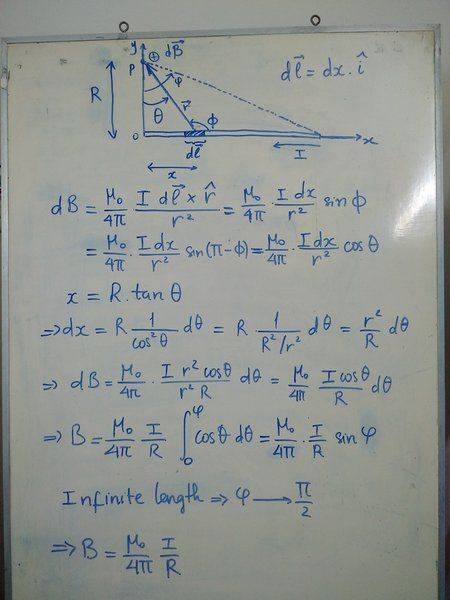 y
P ⊕ dB⃗ dl⃗ = dx · î
φ
R r⃗
θ ϕ
o x
dl⃗ I
x
dB = μ₀/4π I dl⃗ × r̂/r² = μ₀/4π · I dx/r² sin ϕ
= μ₀/4π · I dx/r² sin(π-ϕ) = μ₀/4π · I dx/r² cos θ
x = R · tan θ
⇒ dx = R 1/cos²θ dθ = R · 1/R²/r² dθ = r²/R dθ
⇒ dB = μ₀/4π · I r² cosθ/r² R dθ = μ₀/4π · I cosθ/R dθ
⇒ B = μ₀/4π I/R ∫₀^φ cosθ dθ = μ₀/4π · I/R sin φ
Infinite length ⇒ φ ⟶ π/2
⇒ B = μ₀/4π I/R